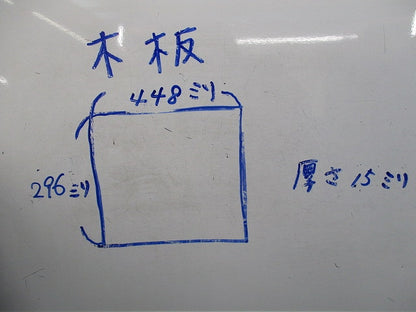 木板
448ミリ
296ミリ
厚さ15ミリ